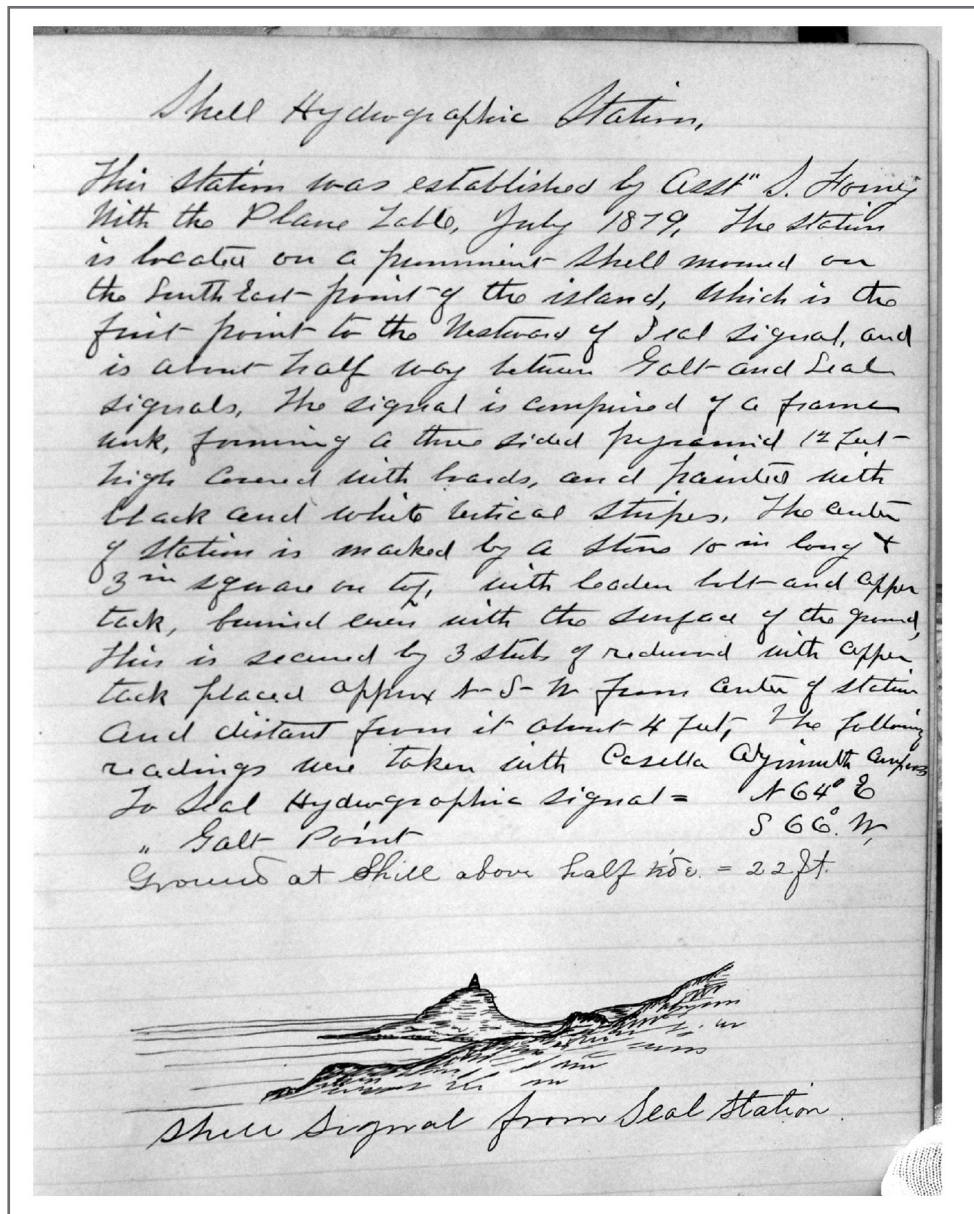 Shell Hydrographic Station,
This station was established by Asst" S. Forney
With the Plane Table, July 1879, The station
is located on a prominent shell mound on
the South East point of the island, which is the
first point to the Westward of Seal signal, and
is about half way between Galt and Seal
signals, The signal is composed of a frame
work, forming a three sided pyramid 12 feet
high covered with boards, and painted with
black and white vertical stripes, The center
of station is marked by a stone 10 in long &
3 in square on top, with leaden bolt and copper
tack, burried even with the surface of the ground,
This is secured by 3 stubs of redwood with copper
tack placed approx N-S-W from center of station
and distant from it about 4 feet, The following
readings were taken with Casella Azimuth Compass
To Seal Hydrographic signal = N 64° E
" Galt Point S 66° W,
Ground at Shell above half tide = 22 ft.
Shell Signal from Seal Station.